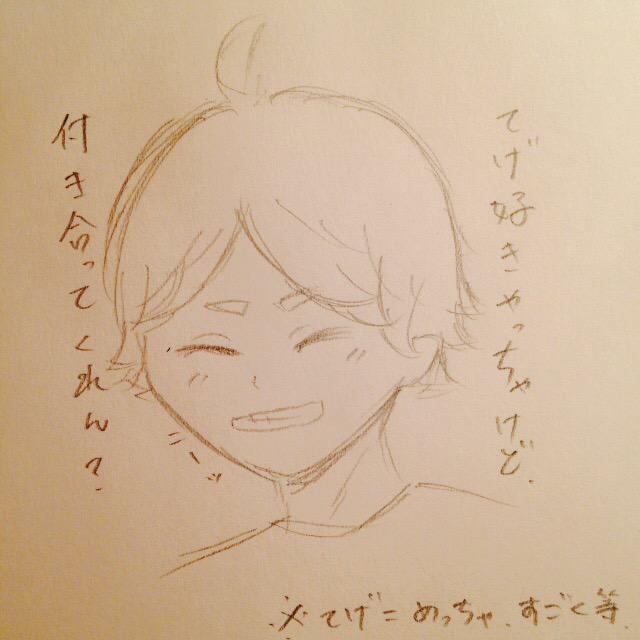 てげ好きやっちゃけど、
付き合ってくれん？
※てげ＝めっちゃ、すごく等